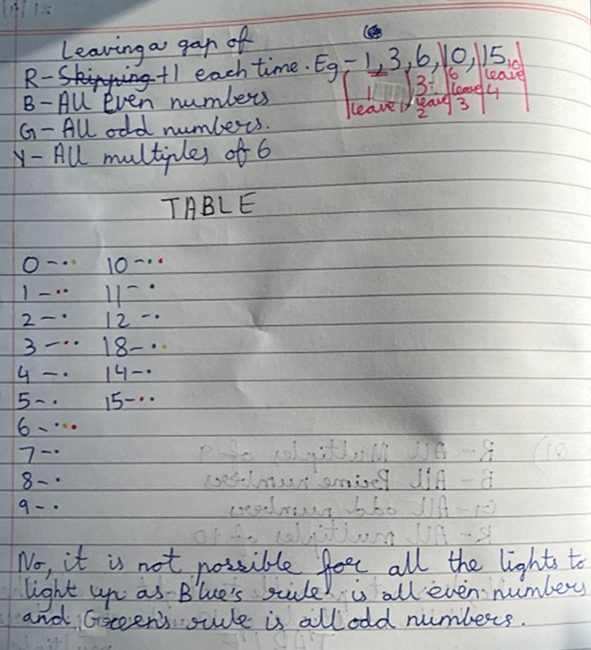 Leaving a gap of
R- Skipping +1 each time. Eg - 1, 3, 6, 10, 15
1 leave 3 leave 2 6 leave 3 10 leave 4
B- All Even numbers
G- All odd numbers.
Y- All multiples of 6
TABLE
0 - 10 -
1 - 11 -
2 - 12 -
3 - 18 -
4 - 14 -
5 - 15 -
6 -
7 -
8 -
9 -
No, it is not possible for all the lights to
light up as Blue's rule is all even numbers
and Green's rule is all odd numbers.